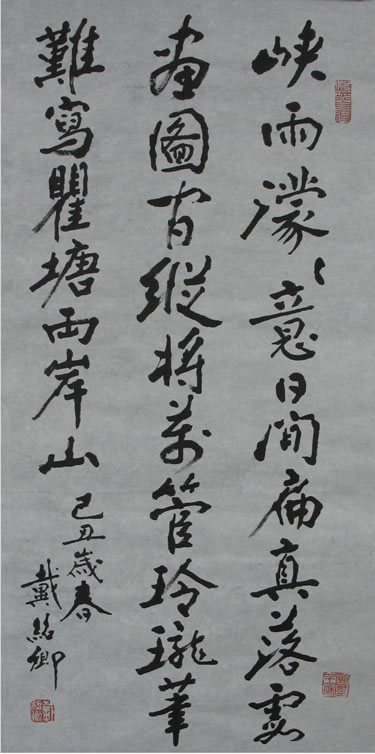 峽雨濛〻意日間扁真落
畫圖間縱將萬管玲瓏筆
難寫瞿塘兩岸山
己丑歲春
戴紹卿